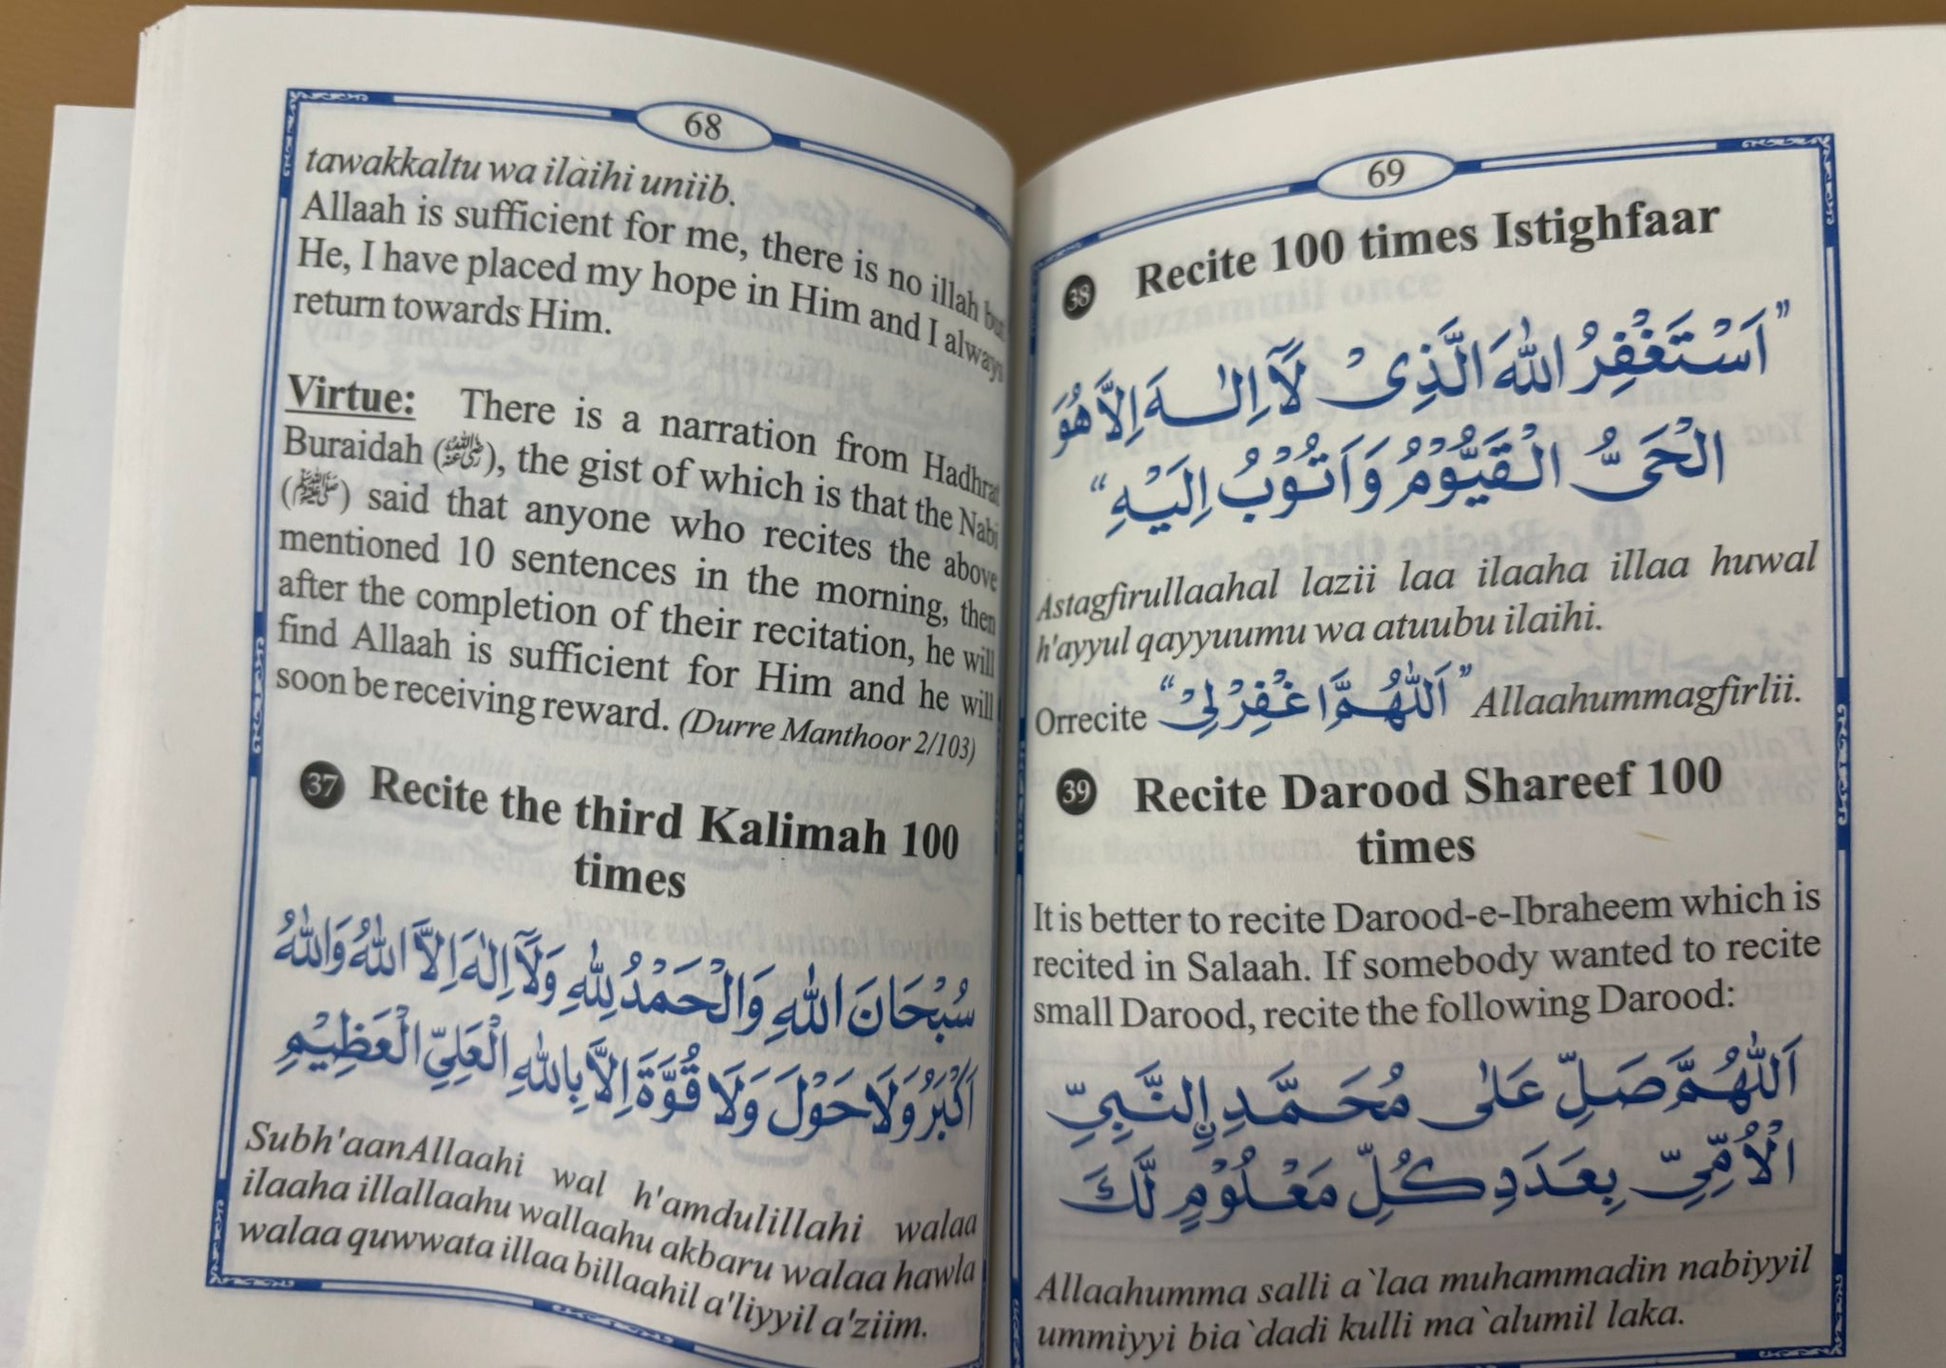 68
tawakkaltu wa ilaihi uniib.
Allaah is sufficient for me, there is no illah but
He, I have placed my hope in Him and I always
return towards Him.
Virtue: There is a narration from Hadhrat
Buraidah (رضي الله عنه), the gist of which is that the Nabi
(ﷺ) said that anyone who recites the above
mentioned 10 sentences in the morning, then
after the completion of their recitation, he will
find Allaah is sufficient for Him and he will
soon be receiving reward. (Durre Manthoor 2/103)
37 Recite the third Kalimah 100
times
سُبْحَانَ اللّٰهِ وَالْحَمْدُ لِلّٰهِ وَلَآ اِلٰهَ اِلَّا اللّٰهُ وَاللّٰهُ
اَكْبَرُ وَلَا حَوْلَ وَلَا قُوَّةَ اِلَّا بِاللّٰهِ الْعَلِيِّ الْعَظِيْمِ
Subh'aanAllaahi wal h'amdulillahi walaa
ilaaha illallaahu wallaahu akbaru walaa hawla
walaa quwwata illaa billaahil a'liyyil a'ziim.
69
38 Recite 100 times Istighfaar
”اَسْتَغْفِرُ اللّٰهَ الَّذِىْ لَآ اِلٰهَ اِلَّا هُوَ
الْحَىُّ الْقَيُّوْمُ وَاَتُوْبُ اِلَيْهِ“
Astagfirullaahal lazii laa ilaaha illaa huwal
h'ayyul qayyuumu wa atuubu ilaihi.
Orrecite ”اَللّٰهُمَّ اغْفِرْلِىْ“ Allaahummagfirlii.
39 Recite Darood Shareef 100
times
It is better to recite Darood-e-Ibraheem which is
recited in Salaah. If somebody wanted to recite
small Darood, recite the following Darood:
اَللّٰهُمَّ صَلِّ عَلٰى مُحَمَّدِ ِالنَّبِيِّ
الْاُمِّيِّ بِعَدَدِ كُلِّ مَعْلُوْمٍ لَّكَ
Allaahumma salli a`laa muhammadin nabiyyil
ummiyyi bia`dadi kulli ma`alumil laka.